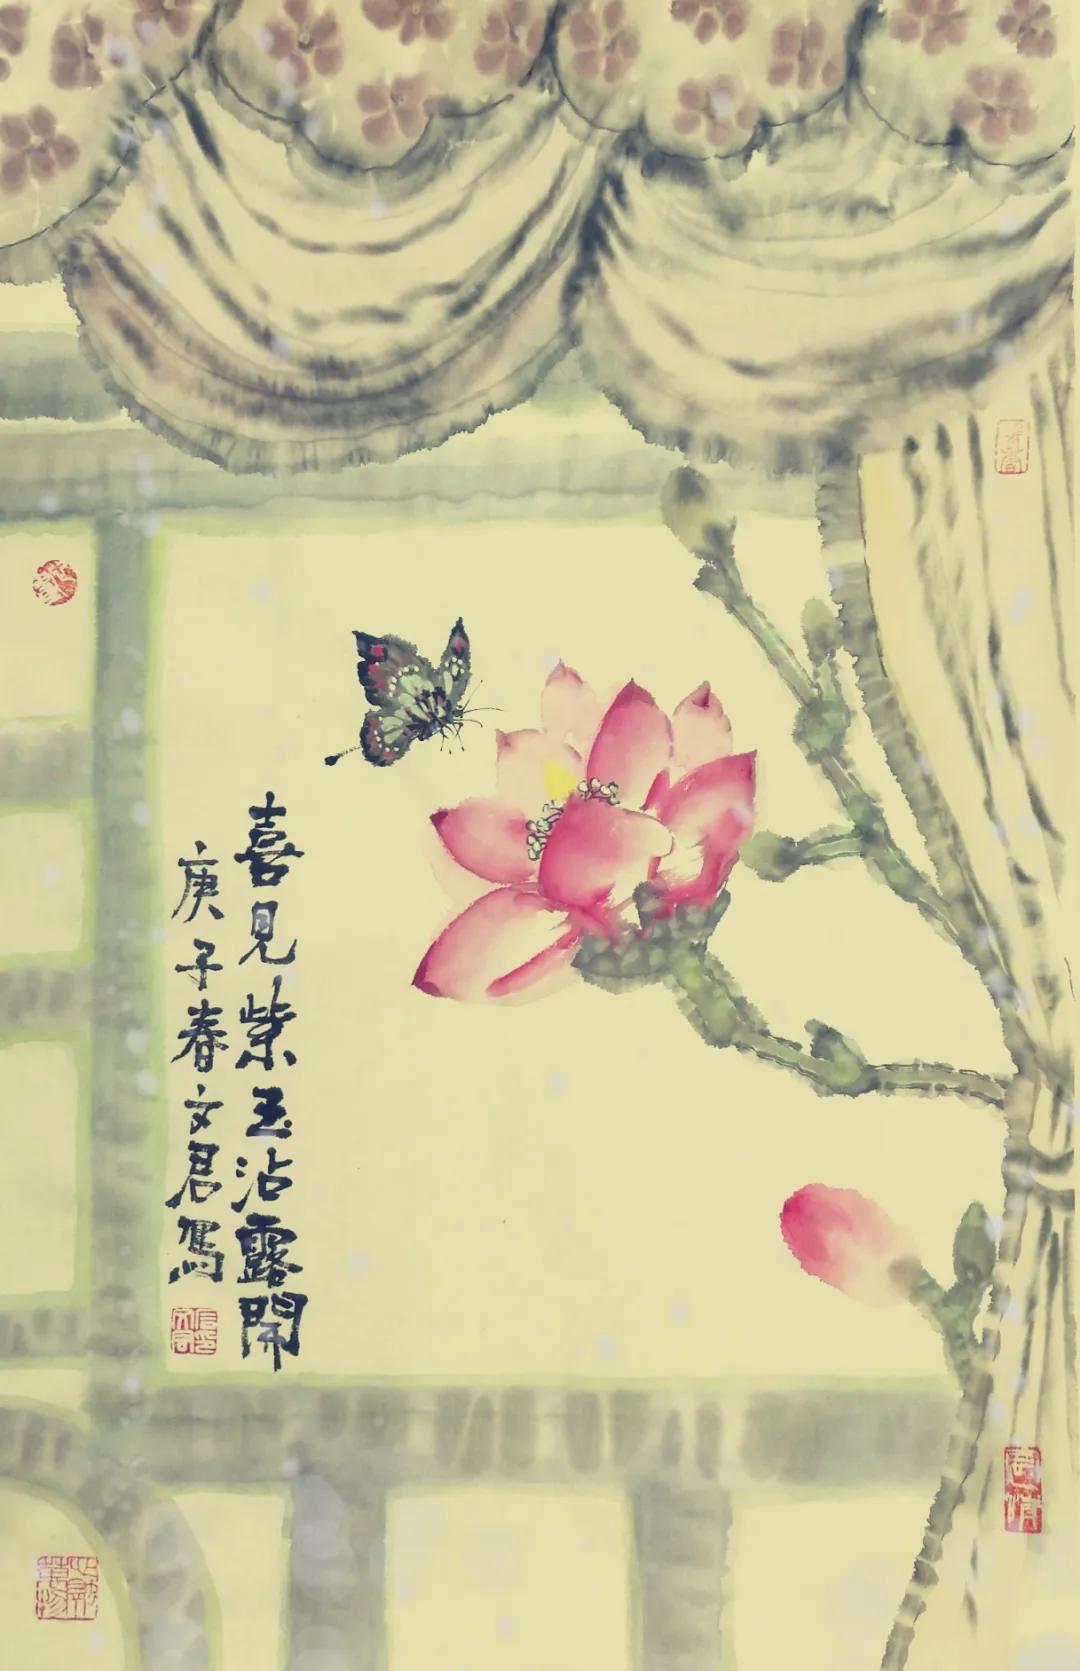 喜見紫玉沾露開
庚子春文君寫